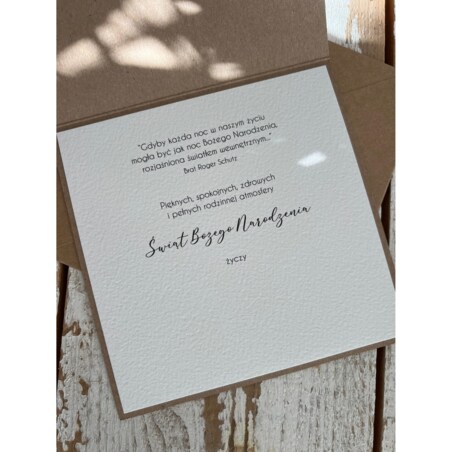 "Gdyby każda noc w naszym życiu
mogła być jak noc Bożego Narodzenia,
rozjaśniona światłem wewnętrznym..."
Brat Roger Schutz
Pięknych, spokojnych, zdrowych
i pełnych rodzinnej atmosfery
Świąt Bożego Narodzenia
życzy